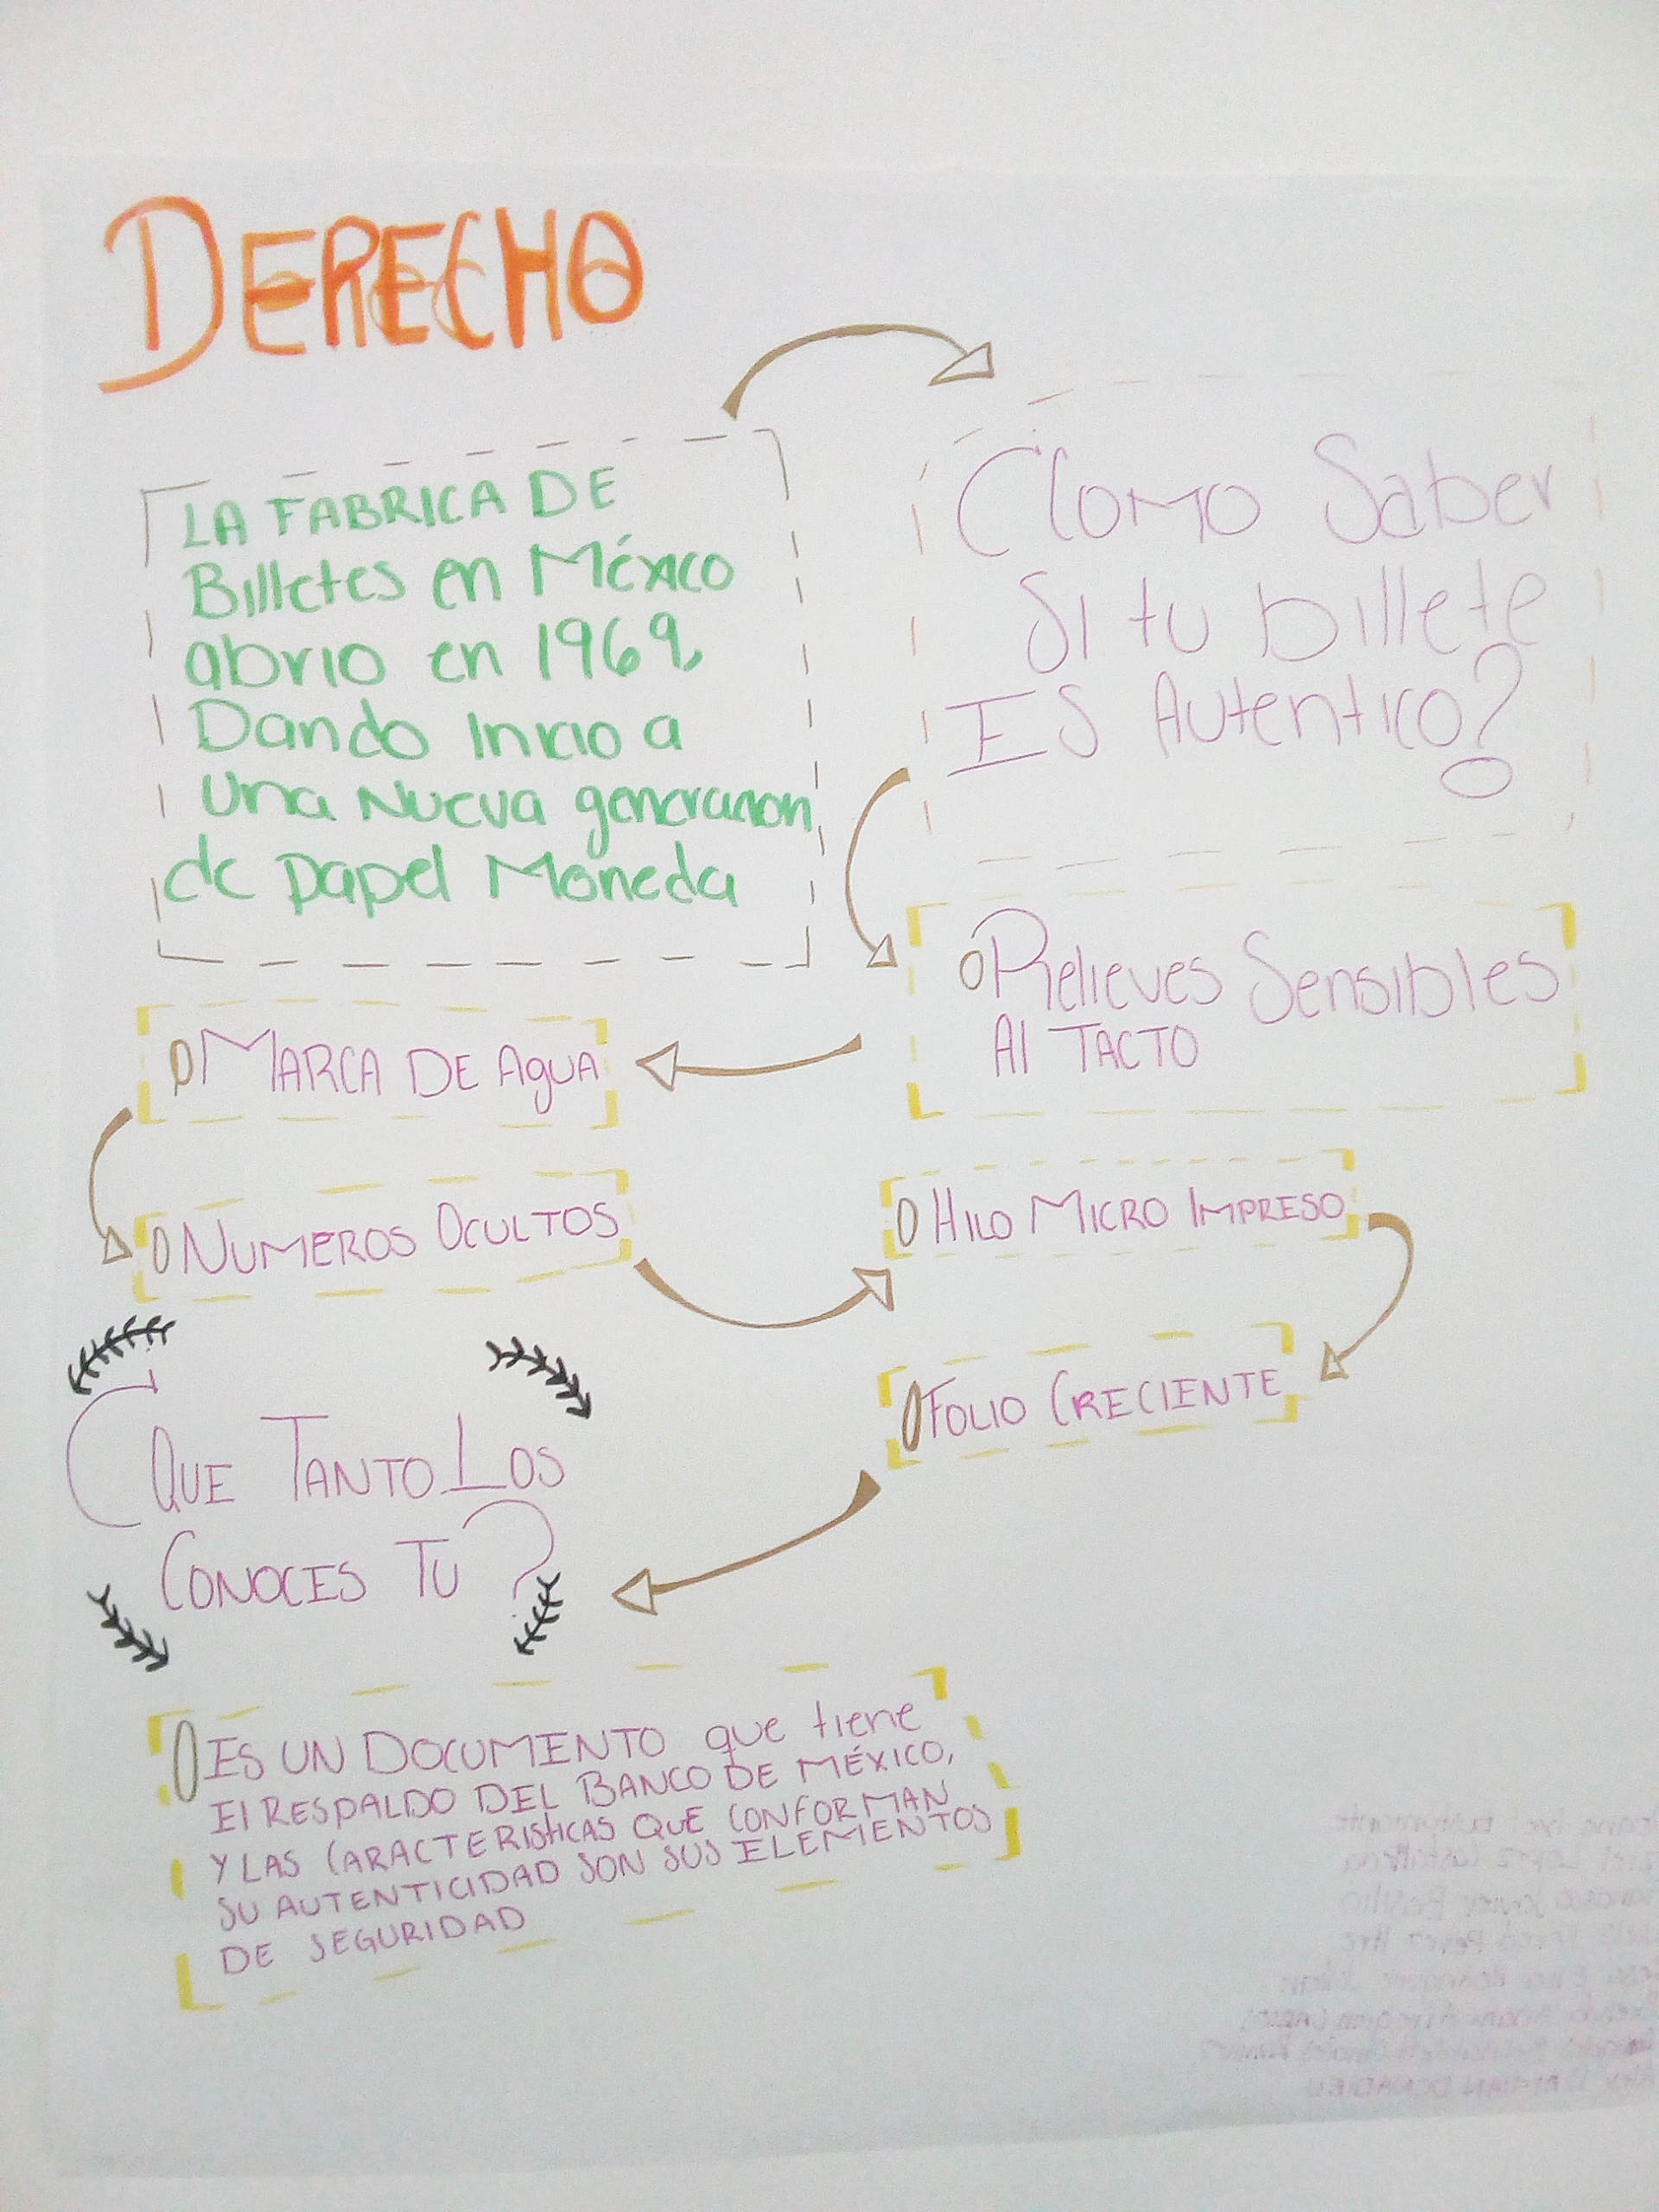 DERECHO
LA FABRICA DE
Billetes en México
abrio en 1969,
Dando Inicio a
Una Nueva generacion
de Papel Moneda
Como Saber
Si tu billete
Es Autentico?
Relieves Sensibles
Al TACTO
MARCA DE AgUA
NUMEROS OCULTOS
HILO MICRO IMPRESO
FOLIO CRECIENTE
QUE TANTO LOS
CONOCES TU?
ES UN DOCUMENTO que tiene
El RESPALDO DEL BANCO DE MÉXICO,
Y LAS CARACTERISTICAS QUE CONFORMAN
SU AUTENTICIDAD SON SUS ELEMENTOS
DE SEGURIDAD